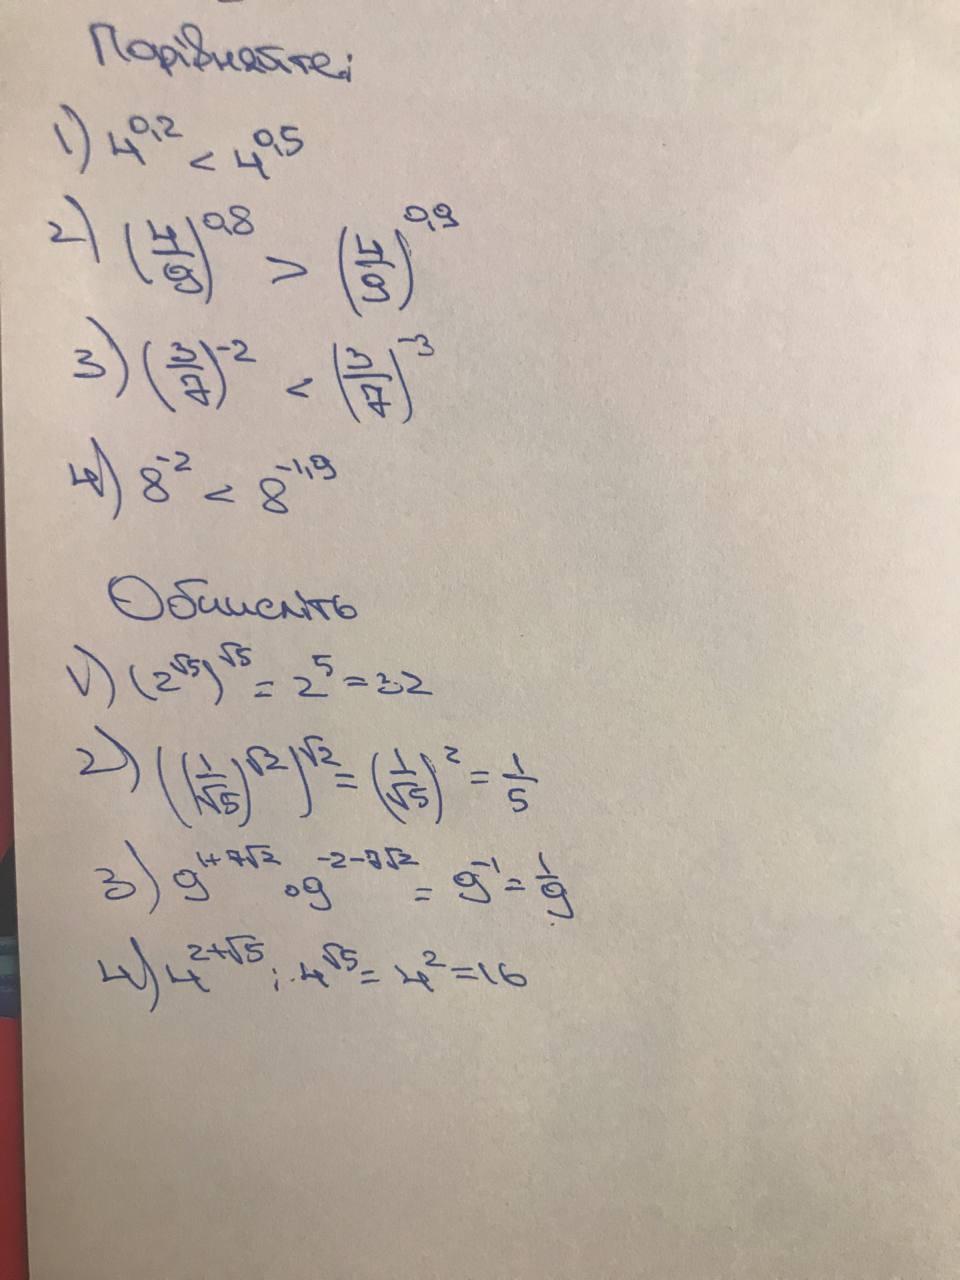 Порівняйте:
1) 4^0,2 < 4^0,5
2) (4/9)^0,8 > (4/9)^0,9
3) (3/7)^-2 < (3/7)^-3
4) 8^-2 < 8^-1,9
Обчисліть
1) (2^√5)^√5 = 2^5 = 32
2) ((1/√5)^√2)^√2 = (1/√5)^2 = 1/5
3) 9^1+7√2 · 9^-2-7√2 = 9^-1 = 1/9
4) 4^2+√5 : 4^√5 = 4^2 = 16